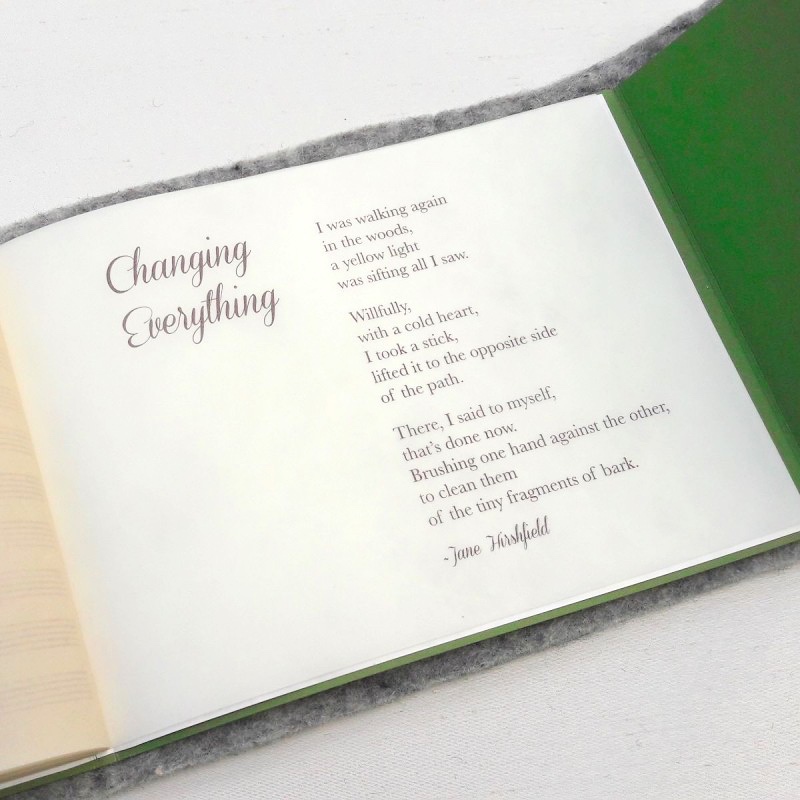 Changing
Everything
I was walking again
in the woods,
a yellow light
was sifting all I saw.
Willfully,
with a cold heart,
I took a stick,
lifted it to the opposite side
of the path.
There, I said to myself,
that's done now.
Brushing one hand against the other,
to clean them
of the tiny fragments of bark.
-Jane Hirshfield